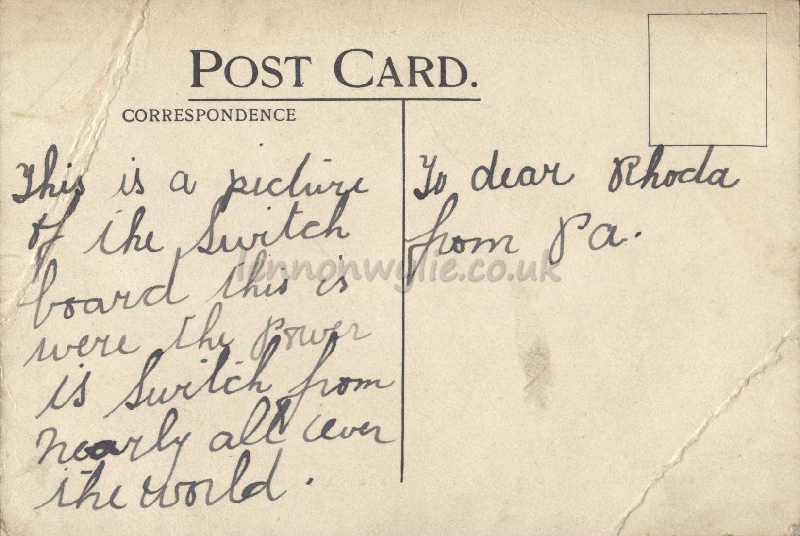 POST CARD.
CORRESPONDENCE
This is a picture
of the Switch
board this is
were the power
is Switch from
nearly all over
the world.
To dear Rhoda
from Pa.
lennonwylie.co.uk